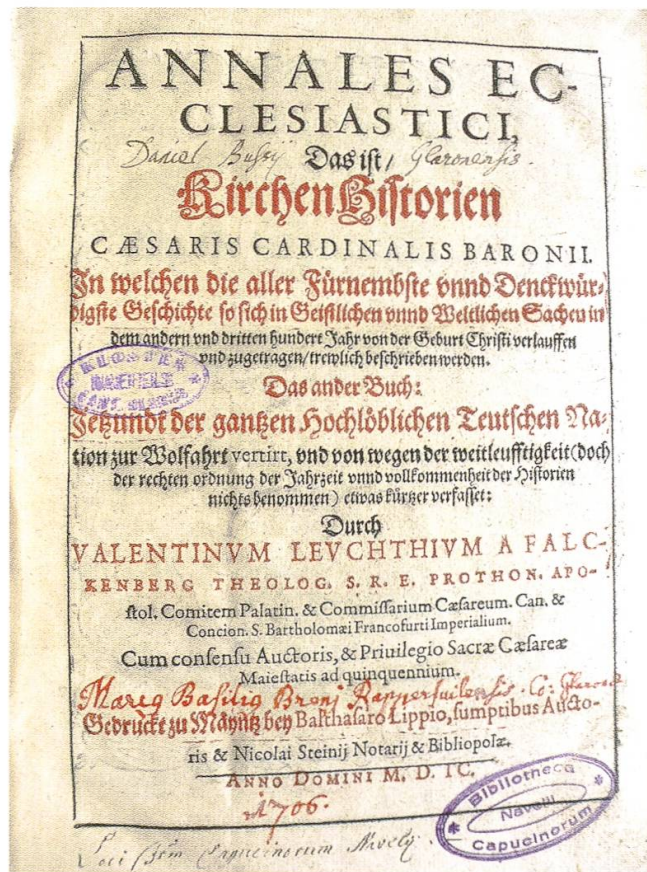 ANNALES EC-
CLESIASTICI,
Daniel Bussij Das ist/ Glaronensis.
KirchenHistorien
CÆSARIS CARDINALIS BARONII.
In welchen die aller Fürnembste vnnd Denckwür-
digste Geschichte so sich in Geistlichen vnnd Weltlichen Sachen in
dem andern vnd dritten hundert Jahr von der Geburt Christi verlauffen
vnd zugetragen/ trewlich beschrieben werden.
KLOSTER
NAEFELS
Das ander Buch:
Jetzundt der gantzen Hochlöblichen Teutschen Na-
tion zur Wolfahrt vertirt, vnd von wegen der weitleufftigkeit (doch
der rechten ordnung der Jahrzeit vnnd vollkommenheit der Historien
nichts benommen) etwas kürtzer verfasset:
Durch
VALENTINVM LEVCHTHIVM A FALC-
KENBERG THEOLOG. S. R. E. PROTHON. APO-
stol. Comitem Palatin. & Commissarium Cæsareum. Can. &
Concion. S. Bartholomæi Francofurti Imperialium.
Cum consensu Auctoris, & Priuilegio Sacræ Cæsareæ
Maiestatis ad quinquennium.
Basilij Rappersuilensis
Gedruckt zu Mäyntz bey Balthasaro Lippio, sumptibus Aucto-
ris & Nicolai Steinij Notarij & Bibliopolæ.
ANNO DOMINI M. D. IC.
1706.
Bibliotheca
Navelii
Capucinorum
Loci Capucinorum